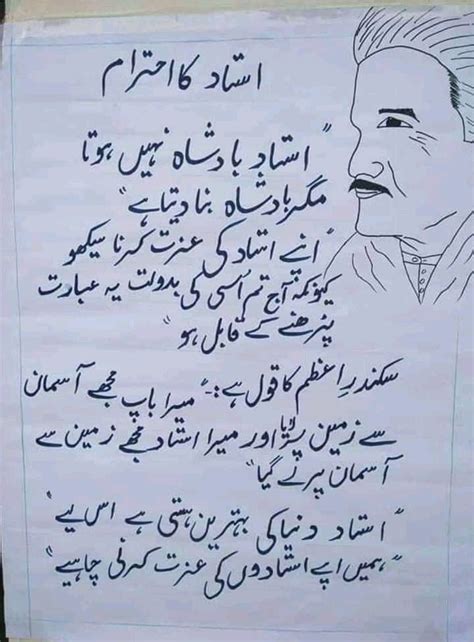 استاد کا احترام
"استاد بادشاہ نہیں ہوتا
مگر بادشاہ بنا دیتا ہے"
"اپنے استاد کی عزت کرنا سیکھو
کیونکہ آج تم اُسی کی بدولت یہ عبارت
پڑھنے کے قابل ہو"
سکندرِ اعظم کا قول ہے:- "میرا باپ مجھے آسمان
سے زمین پر لایا اور میرا استاد مجھے زمین سے
آسمان پر لے گیا"
"استاد دنیا کی بہترین ہستی ہے اس لیے"
"ہمیں اپنے استادوں کی عزت کرنی چاہیے"